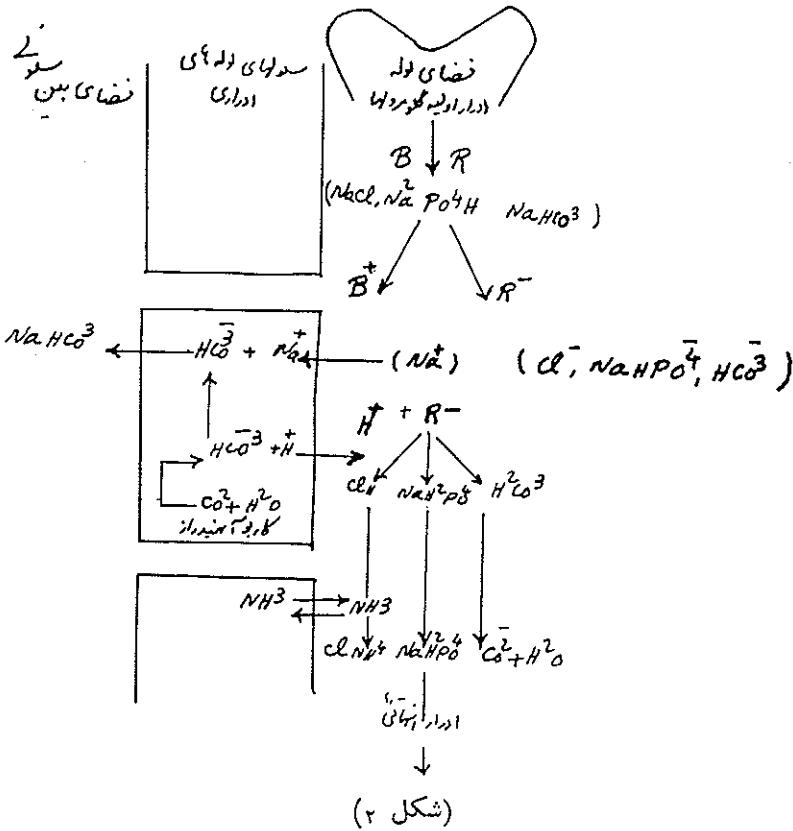 فضای بین سلولی
سلولهای لوله های
ادراری
فضای لوله
ادرار اولیه گلومرولها
B R
(NaCl, Na² PO⁴H NaHCO³)
B⁺ R⁻
NaHCO³ HCO³⁻ + Na⁺ (Na⁺) (Cl⁻, NaHPO⁴⁻, HCO³⁻)
H⁺ + R⁻
HCO³⁻ + H⁺
ClH NaH²PO⁴ H²CO³
CO² + H²O
NH³ NH3
ClNH⁴ NaH²PO⁴ CO²⁻ + H²O
ادرار نهائی
(شکل ۲)